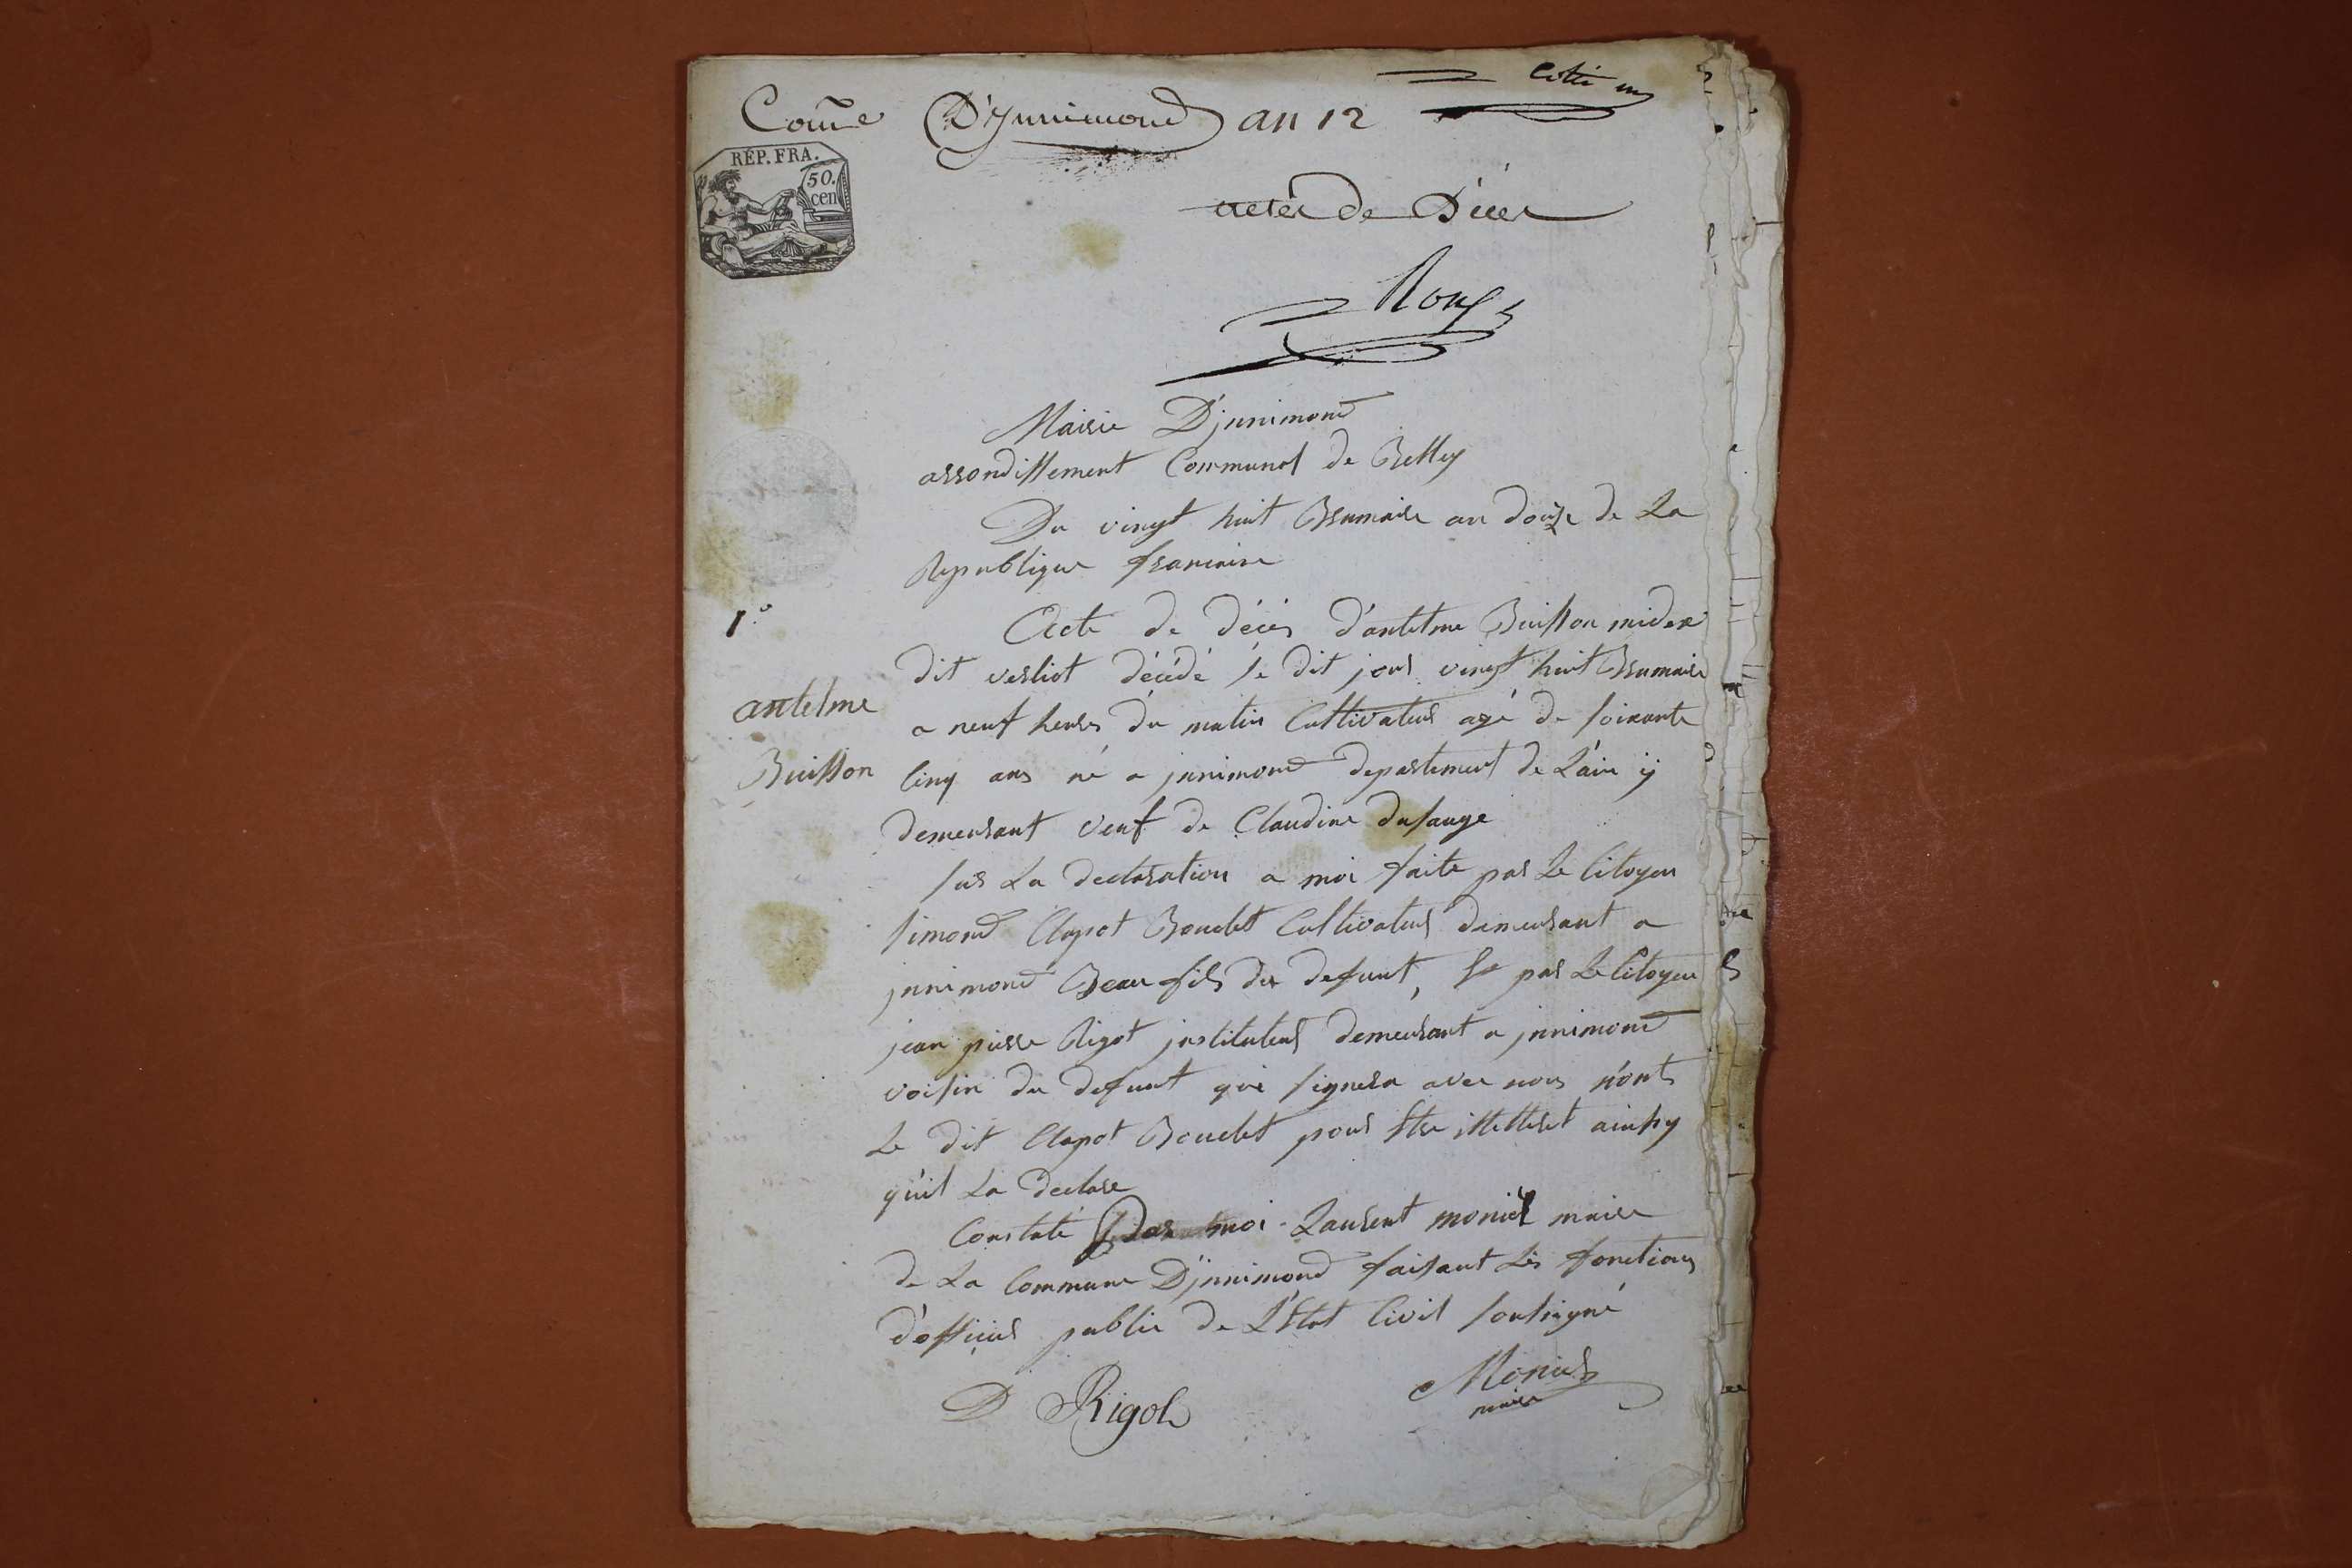 Cotté un
Com̃e D'Ynnimond an 12
RÉP. FRA.
50.
cen
actes de Décés
Mairie D'jnnimond
arrondissement Communal de Belley
Du vingt huit Brumaire an douze de La
Republique francaise
1°
Acte de décés d'antelme Buisson
dit verliot décédé le dit jour vingt huit Brumaire
antelme
a neuf heures du matin Cultivateur agé de soixante
Buisson
Cinq ans né a jnnimond departement de L'ain ÿ
demeurant veuf de Claudine dusauge
sur La declaration a moi faite par Le Citoyen
simond Clapot Bouclet Cultivateur demeurant a
jnnimond Beau fils du defunt, Et par Le Citoyen
jean pierre Rigot jnstituteur demeurant a jnnimond
voisin du defunt qui signera avec nous n'ont
Le dit Clapot Bouclet pour Etre illetteret ainsy
qu'il La declare
Constaté Par moi Laurent moniet maire
de La Commune D'jnnimond faisant Les fonctions
d'officier public de L'Etat Civil soussigné
Rigot
Moniet
maire